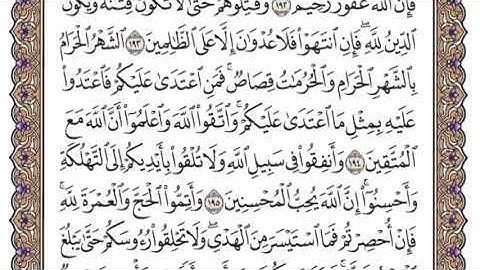 فَإِنَّ ٱللَّهَ غَفُورٌ رَّحِيمٌ ١٩٢ وَقَٰتِلُوهُمْ حَتَّىٰ لَا تَكُونَ فِتْنَةٌ وَيَكُونَ
ٱلدِّينُ لِلَّهِۖ فَإِنِ ٱنتَهَوْا۟ فَلَا عُدْوَٰنَ إِلَّا عَلَى ٱلظَّٰلِمِينَ ١٩٣ ٱلشَّهْرُ ٱلْحَرَامُ
بِٱلشَّهْرِ ٱلْحَرَامِ وَٱلْحُرُمَٰتُ قِصَاصٌۚ فَمَنِ ٱعْتَدَىٰ عَلَيْكُمْ فَٱعْتَدُوا۟
عَلَيْهِ بِمِثْلِ مَا ٱعْتَدَىٰ عَلَيْكُمْۚ وَٱتَّقُوا۟ ٱللَّهَ وَٱعْلَمُوٓا۟ أَنَّ ٱللَّهَ مَعَ
ٱلْمُتَّقِينَ ١٩٤ وَأَنفِقُوا۟ فِى سَبِيلِ ٱللَّهِ وَلَا تُلْقُوا۟ بِأَيْدِيكُمْ إِلَى ٱلتَّهْلُكَةِ
وَأَحْسِنُوٓا۟ۛ إِنَّ ٱللَّهَ يُحِبُّ ٱلْمُحْسِنِينَ ١٩٥ وَأَتِمُّوا۟ ٱلْحَجَّ وَٱلْعُمْرَةَ لِلَّهِۚ
فَإِنْ أُحْصِرْتُمْ فَمَا ٱسْتَيْسَرَ مِنَ ٱلْهَدْىِۖ وَلَا تَحْلِقُوا۟ رُءُوسَكُمْ حَتَّىٰ يَبْلُغَ